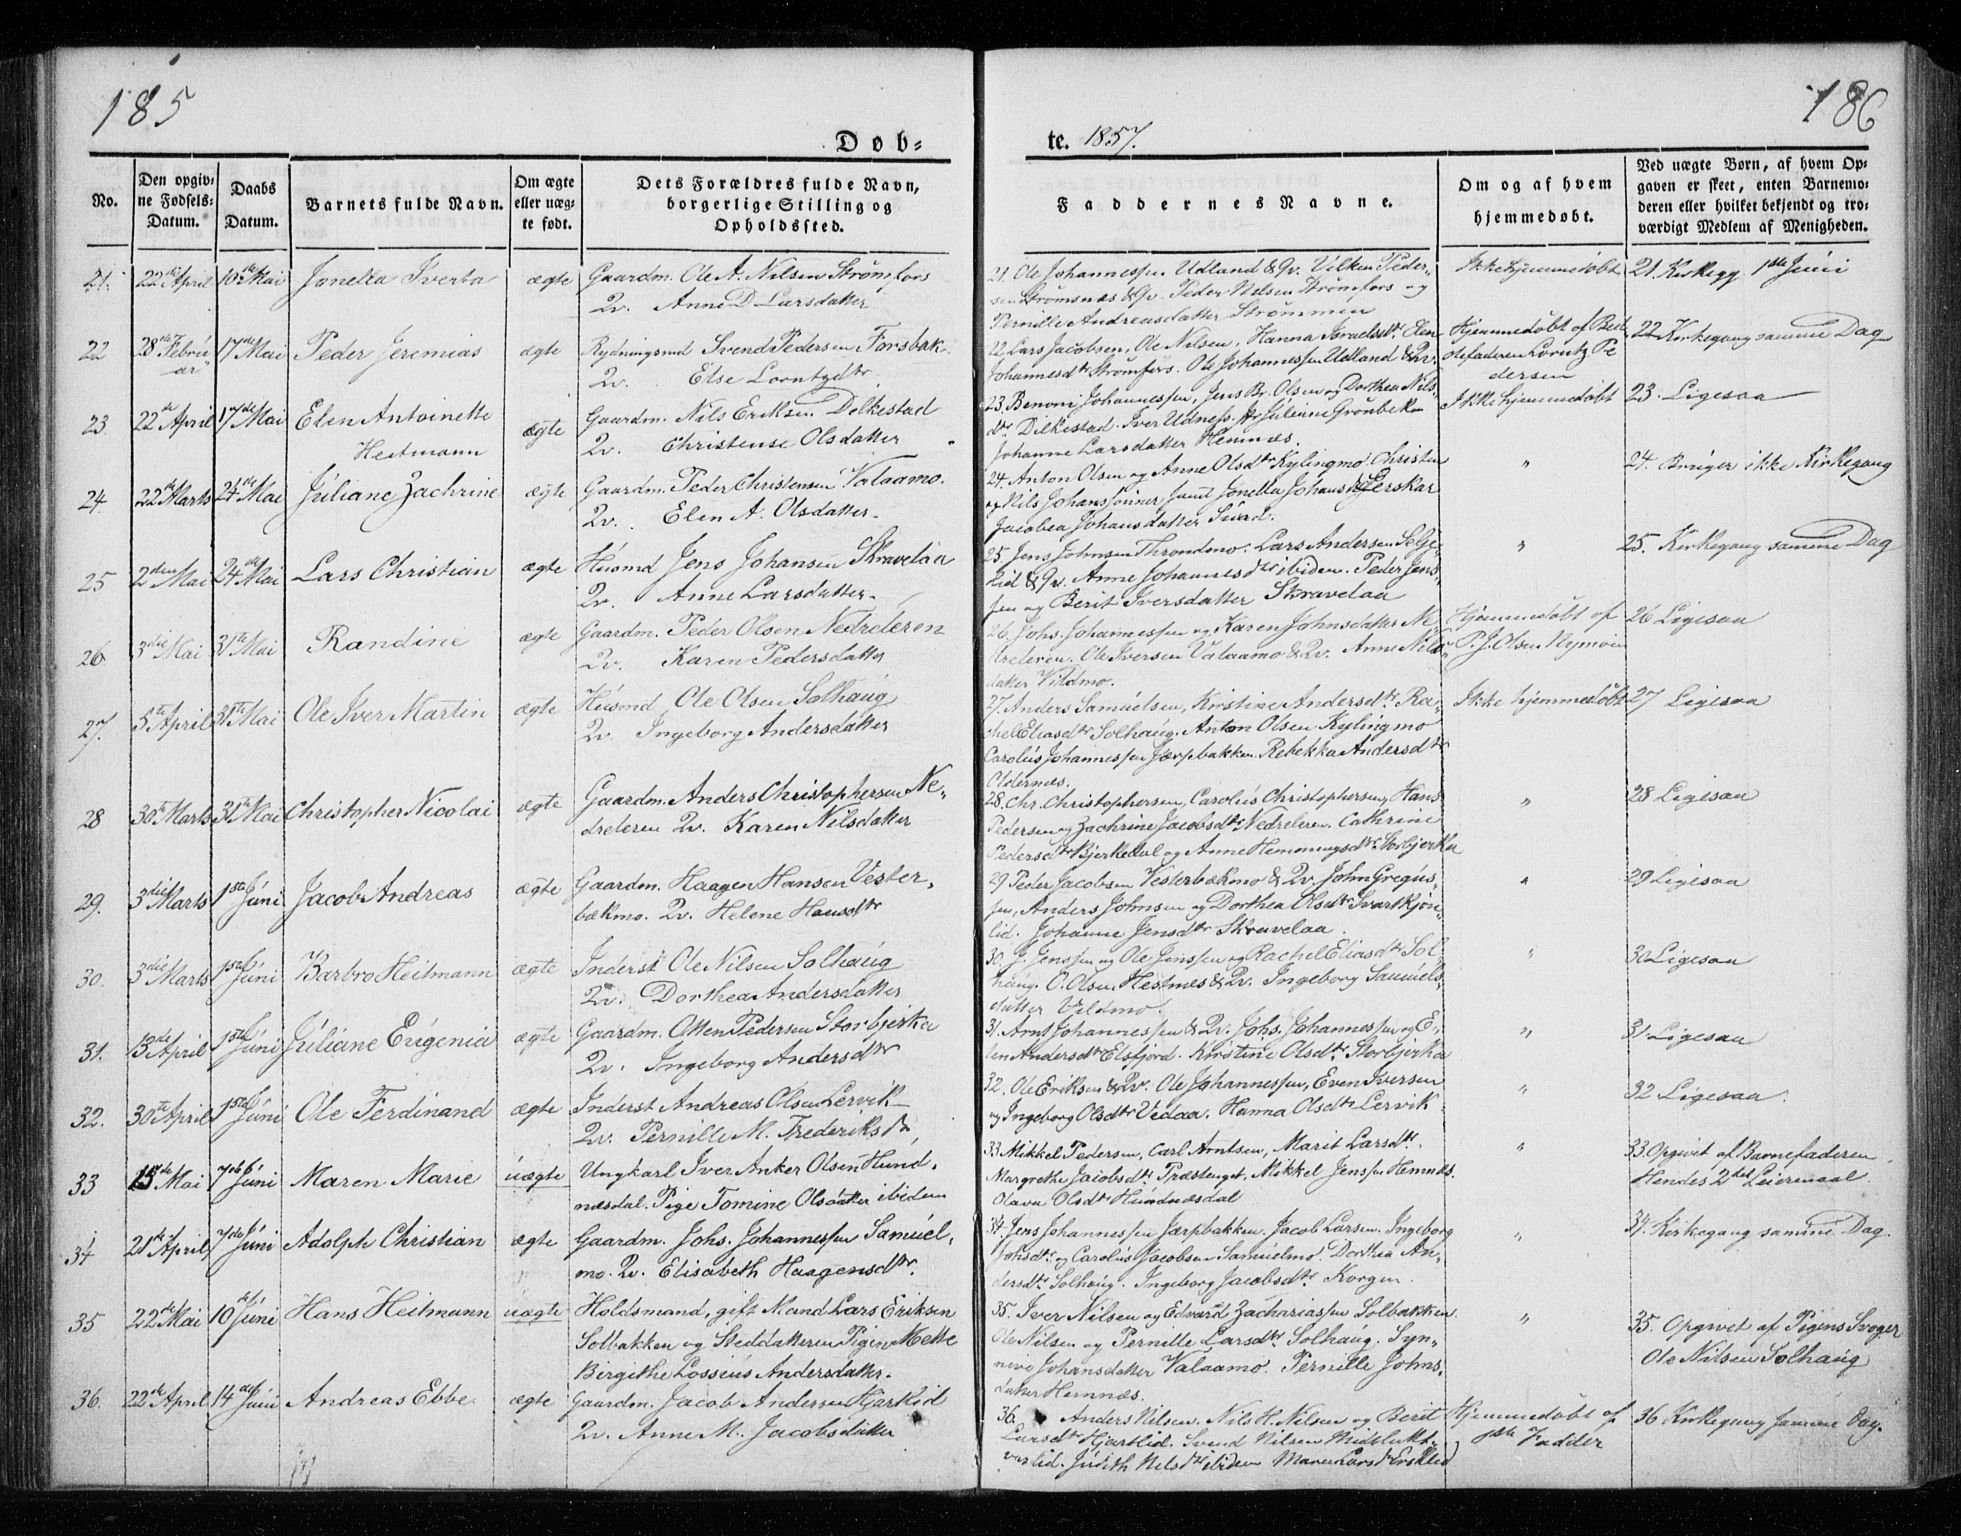 185
186
Døb-
te. 1857.
No.
Den opgiv-
ne Fødsels-
Datum.
Daabs
Datum.
Barnets fulde Navn.
Om ægte
eller uæg-
te født.
Dets Forældres fulde Navn,
borgerlige Stilling og
Opholdssted.
Faddernes Navne.
Om og af hvem
hjemmedøbt.
Ved uægte Børn, af hvem Op-
gaven er skeet, enten Barnemo-
deren eller hvilket bekjendt og tro-
værdigt Medlem af Menigheden.
21. 22de April 10de Mai Jonetta Iverta ægte Gaardm. Ole A. Nilsen Strømfors
Qv. Anne D Larsdatter
21. Ole Johannessen Udland & Qv. Vilken Peder-
sen Strømsnæs & Qv. Peder Nilsen Strømfors og
Pernille Andreasdatter Strømmen
Ikke hjemmedøbt
21. Kirkegg 1ste Juni
22 28de Febru- 17de Mai Peder Jeremias ægte Rydningsmd Svend Pedersen Forsbak
ar
Qv. Else Lorntzdtr
22 Lars Jacobsen, Ole Nilsen, Hanna Israelsdtr Elen
Johannesdtr Strømfors. Ole Johannessen Udland & Qv.
Hjemmedøbt af Bed-
stefaderen Lorntz Pe
dersen
22 Kirkegang samme Dag
23. 22de April 17de Mai Elen Antoinette ægte Gaardm. Nils Eriksen Dilkestad
Heitmann
Qv. Christense Olsdatter
23. Benoni Johannessen, Jens Br. Olsen og Dorthea Nils-
dtr Dilkestad. Iver Udness. Juliene Grønbek
Johanne Larsdatter Hemnæs.
Ikke hjemmedøbt
23. Ligesaa
24. 22de Marts 24de Mai Juliane Zachrine ægte Gaardm. Peder Christensen Valaamo.
Qv. Elen A. Olsdatter
24 Anton Olsen og Anne Olsdtr Kylingmo. Christen
og Nils Johanssønner samt Jonetta Johansd
Jacobea Johansdatter
"
24. Bruger ikke Kirkegang
25 2den Mai 24de Mai Lars Christian ægte Huusmd Jens Johansen Skravelaa
Qv. Anne Larsdatter
25 Jens Johnsen Throndmo. Lars Andersen Selje-
lid & Qv. Anne Johannesdtr ibidem. Peder Jens-
sen og Berit Iversdatter Skravelaa
"
25. Kirkegang samme Dag
26. 3die Mai 31te Mai Randine ægte Gaardm. Peder Olsen Nedreleren
Qv. Karen Pedersdatter
26. Johs. Johannessen og Karen Johnsdatter Ne-
dreleren. Ole Iversen Valaamo & Qv. Anne Nils-
datter Vildmo.
Hjemmedøbt af
P. J. Olsen Nymoen
26 Ligesaa
27. 5te April 31te Mai Ole Iver Martin ægte Huusmd Ole Olsen Solhaug
Qv. Ingeborg Andersdatter
27. Anders Samuelsen, Kirstine Andersdtr Ra-
chel Eliasdtr Solhaug. Anton Olsen Kylingmo
Carolus Johannessen Jærpbakken. Rebekka Andersdtr
Oldernæs.
Ikke hjemmedøbt
27 Ligesaa
28 30te Marts 31te Mai Christopher Nicolai ægte Gaardm. Anders Christophersen Ne-
dreleren Qv. Karen Nilsdatter
28. Chr. Christophersen, Carolus Christophersen, Hans
Pedersen og Zachrine Jacobsdtr Nedreleren. Cathrine
Pedersdtr Bjerkedal og Anne Hemmingsdtr Storbjerka
"
28 Ligesaa
29. 3die Marts 1ste Juni Jacob Andreas ægte Gaardm. Haagen Hansen Vester-
bækmo. Qv. Helene Hansdtr
29 Peder Jacobsen Vesterbækmo & Qv. John Gregus-
sen, Anders Johnsen og Dorthea Olsdtr Svartkjøn-
lid. Johanne Jensdtr Skravelaa.
"
29 Ligesaa
30. 3die Marts 1ste Juni Barbro Heitmann ægte Inderst Ole Nilsen Solhaug
Qv. Dorthea Andersdatter
30. J. Jenssen og Ole Jenssen og Rachel Eliasdtr Sol-
haug. O. Olsen Hestnes & Qv. Ingeborg Samuels-
datter Vildmo.
"
30 Ligesaa
31. 13de April 1ste Juni Juliane Eugenia ægte Gaardm. Otten Pedersen Storbjerka
Qv. Ingeborg Andersdtr
31. Arnt Johannessen & Qv. Johs. Johannessen og E-
len Andersdtr Elsfjord. Kirstine Olsdtr Storbjerka
"
31 Ligesaa
32. 30te April 1ste Juni Ole Ferdinand ægte Inderst Andreas Olsen Lervik
Qv. Pernille M. Frederiksdtr
32. Ole Eriksen & Qv. Ole Johannessen, Even Iversen
og Ingeborg Olsdtr Vedaa. Hanna Olsdtr Lervik
"
32 Ligesaa.
33 15de Mai 7de Juni Maren Marie uægte Ungkarl Iver Anker Olsen Hund-
næsdal. Pige Tomine Olsdatter ibidem
33 Mikkel Pedersen, Carl Arntsen, Marit Larsdtr.
Margrethe Jacobsdtr Præstenget. Mikkel Jenssen Hemnæs.
Olava Olsdtr Hundnæsdal
"
33 Opgivet af Barnefaderen
Hendes 2det Leiermaal.
34 21de April 7de Juni Adolph Christian ægte Gaardm. Johs. Johannessen Samuel-
mo. Qv. Elisabeth Haagensdtr.
34. Jens Johannessen Jærpbakken, Jacob Larsen, Ingeborg
Johsdtr og Carolus Jacobsen Samuelmo. Dorthea An-
dersdtr Solhaug. Ingeborg Jacobsdtr Korgen.
"
34. Kirkegang samme Dag.
35 22de Mai 10de Juni Hans Heitmann uægte Holdsmand, gift Mand Lars Eriksen
Solbakken og Steddatteren Pigen Mette
Birgithe Lossius Andersdatter.
35. Iver Nilsen og Edvard Zachariassen Solbakken.
Ole Nilsen og Pernille Larsdtr Solhaug. Syn-
neve Johansdatter Valaamo. Pernille Johns-
datter Hemnæs.
"
35. Opgivet af Pigens Svoger
Ole Nilsen Solhaug
36. 22de April 14de Juni Andreas Ebbe ægte Gaardm. Jacob Andersen Hjartlid
Qv. Anne M. Jacobsdatter
36. Anders Nilsen. Nils H. Nilsen og Berit
Larsdtr Hjartlid. Svend Nilsen
Judith Nilsdtr ibidem Maren Larsdtr
Hjemmedøbt af
1ste Fadder
36 Kirkegang samme Dag.